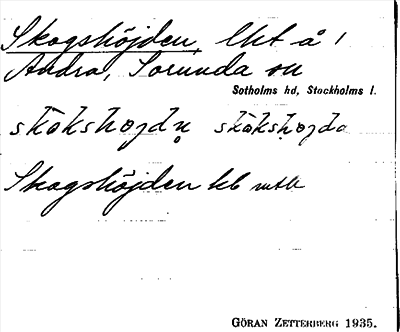 Skogshöjden, lht å 1
Andra, Sorunda sn
Sotholms hd, Stockholms l.
skòkshǫjdn̥ skòkshǫjda
Skogshöjden kb
GÖRAN ZETTERBERG 1935.